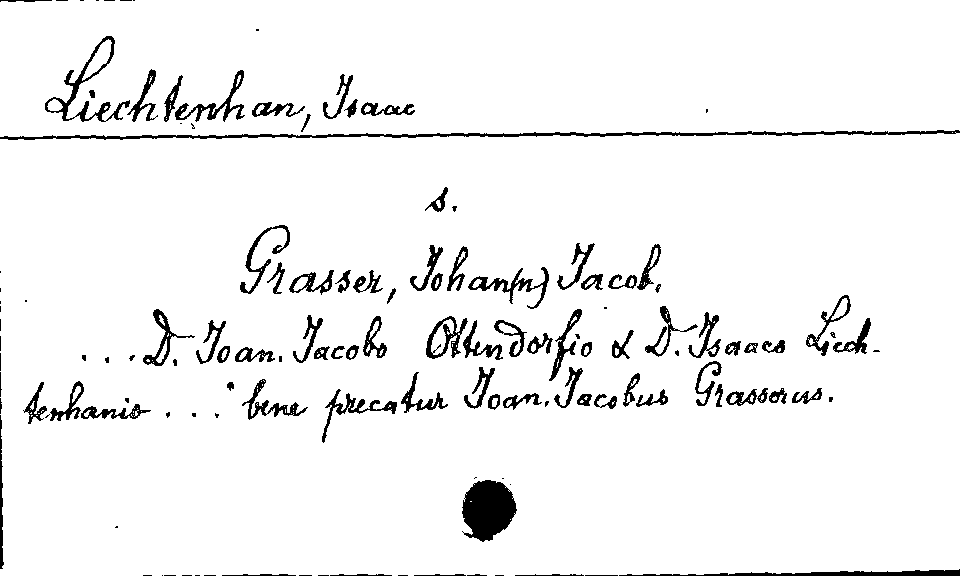 Liechtenhan, Isaac
s.
Grasser, Johan(n) Jacob.
... D. Joan. Jacobo Ottendorfio & D. Isaaco Liech-
tenhanio ..." bene precatur Joan. Jacobus Grasserus.